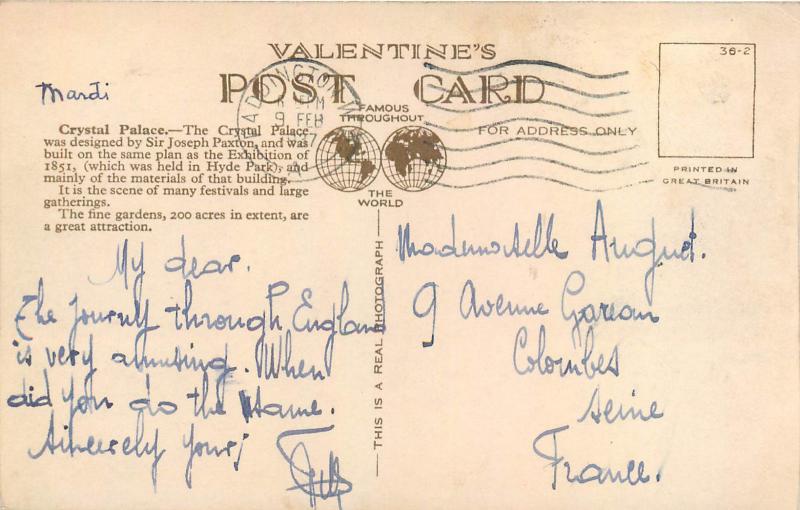 VALENTINE'S
POST CARD
FAMOUS
THROUGHOUT
THE
WORLD
FOR ADDRESS ONLY
36-2
PRINTED IN
GREAT BRITAIN
PADDINGTON
9 FEB
Mardi
Crystal Palace.—The Crystal Palace
was designed by Sir Joseph Paxton, and was
built on the same plan as the Exhibition of
1851, (which was held in Hyde Park), and
mainly of the materials of that building.
It is the scene of many festivals and large
gatherings.
The fine gardens, 200 acres in extent, are
a great attraction.
My dear.
The Journey through England
is very amusing. When
did you do the same.
Sincerely yours
THIS IS A REAL PHOTOGRAPH
Mademoiselle Auguet.
9 Avenue Gareau
Colombes
Seine
France.